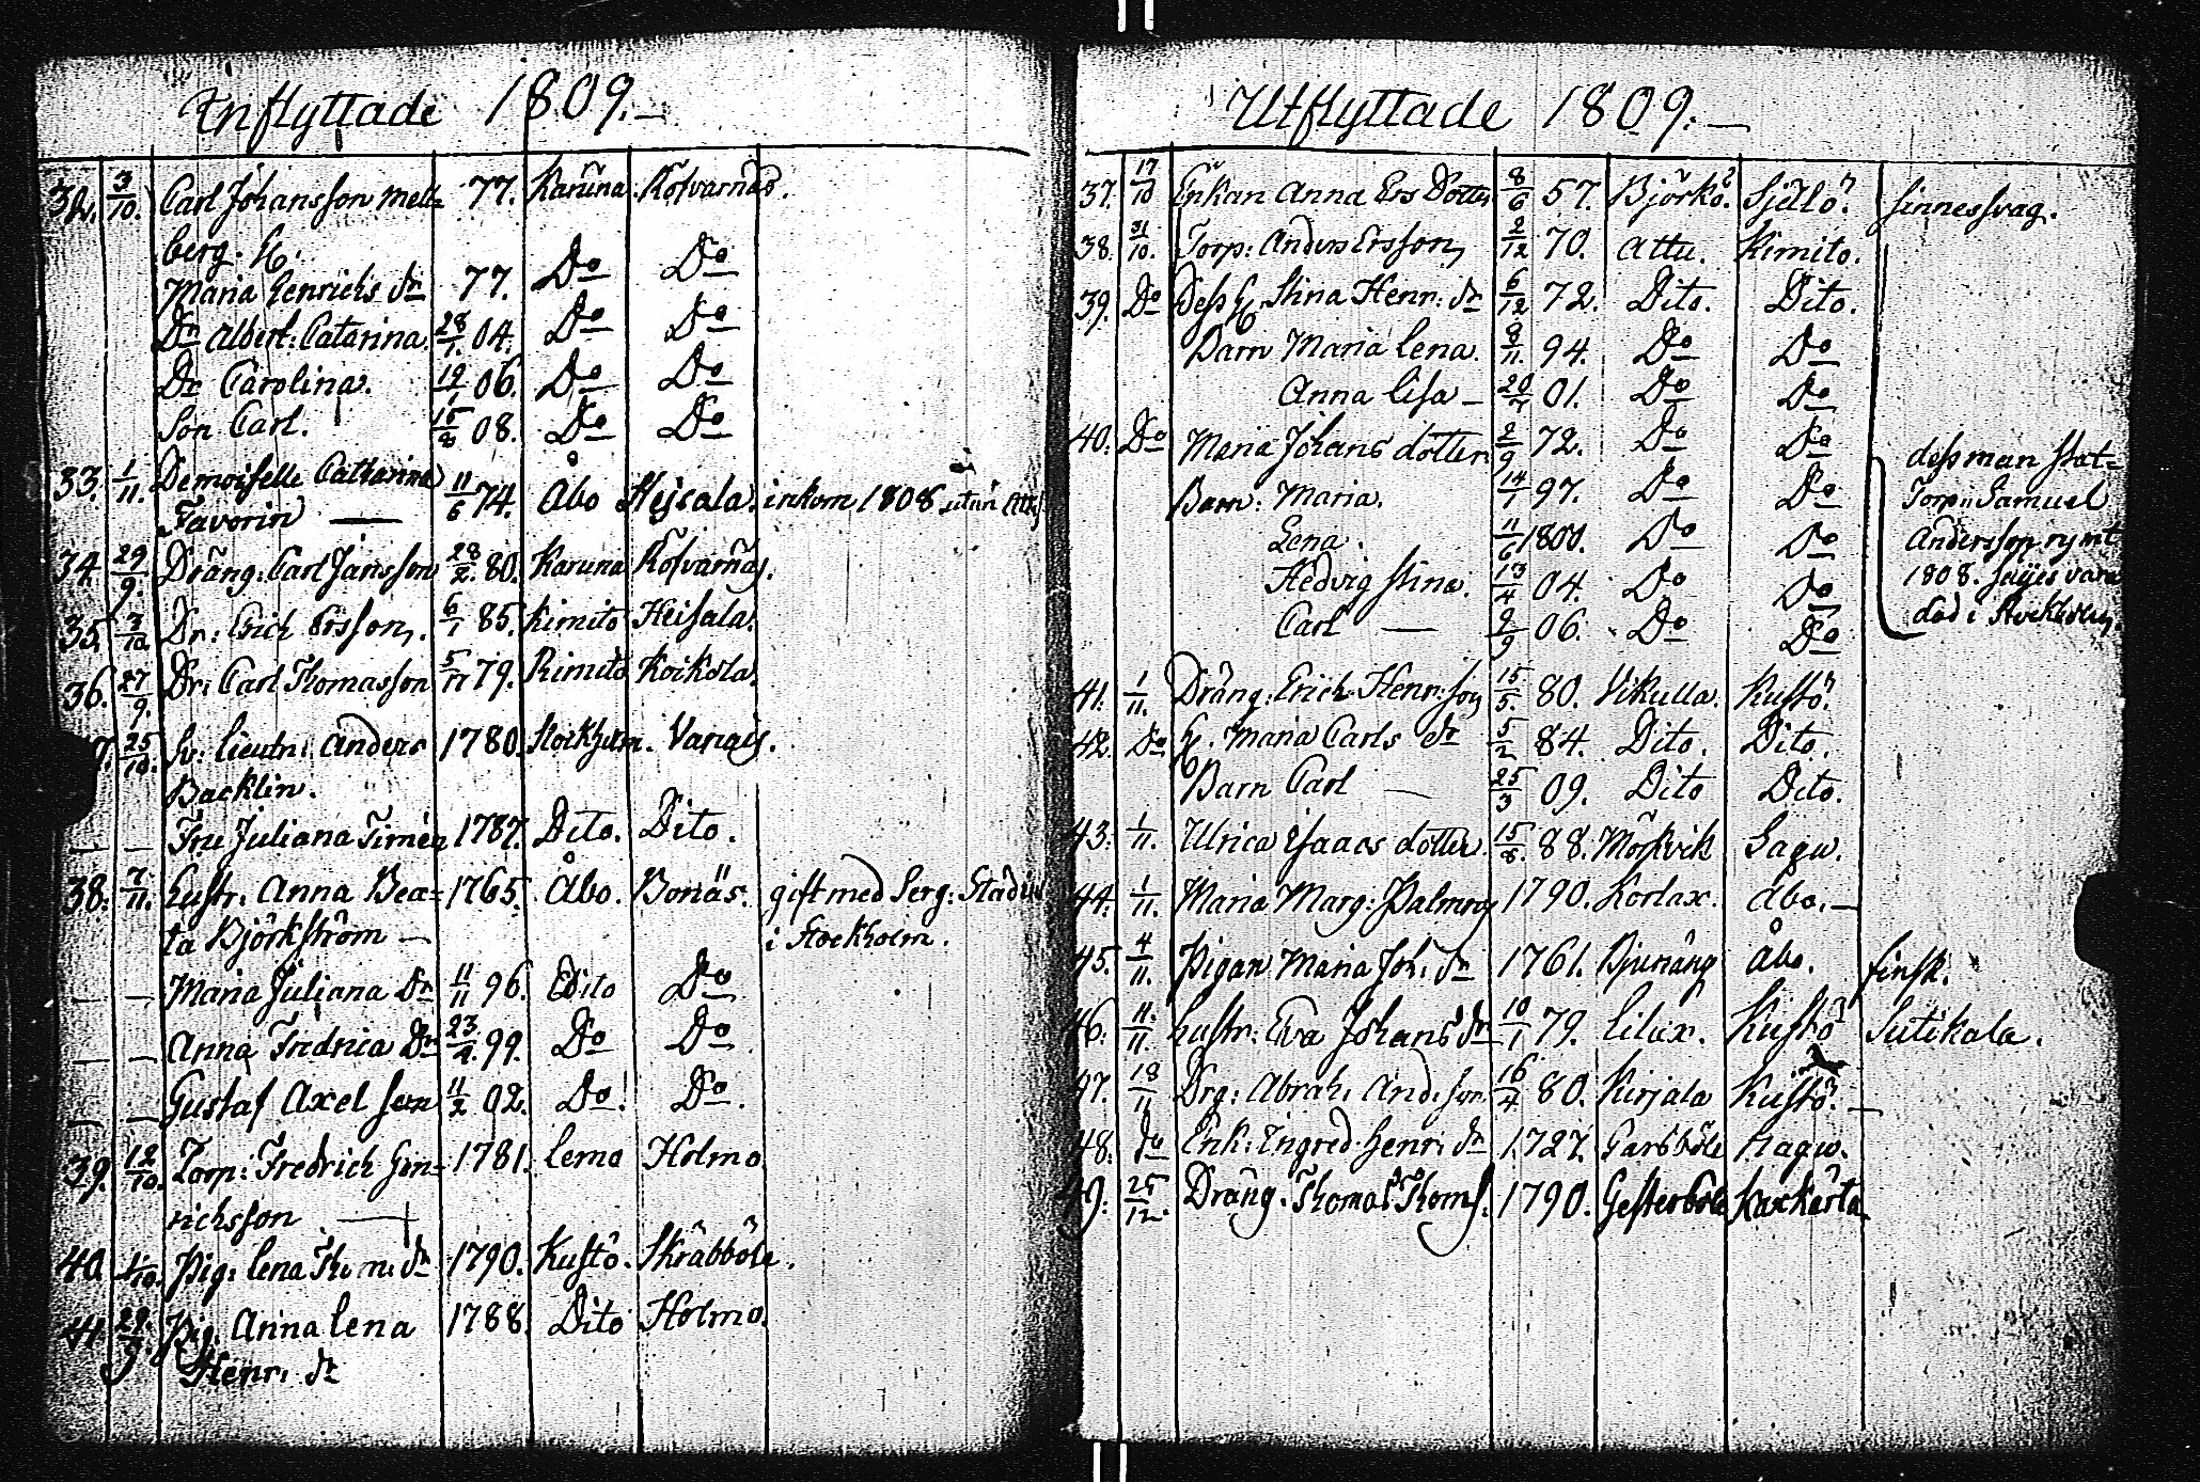 Inflyttade 1809.
32. 3/10. Carl Johansson Mell- 77. Karuna. Kofvarnäs.
berg. H.
Maria Henrichs dr 77. Do Do
Dr Albert: Catarina. 28/1. 04. Do Do
Dr Carolina. 19/1 06. Do Do
Son Carl. 15/8 08. Do Do
33. 1/11. Demoiselle Catharina 11/6 74. Åbo Hejsala. inkom 1808 utan Att:
Favorin —
34. 29/9. Dräng: Carl Jansson 28/2. 80. Karuna Kofvarnäs.
35. 3/10 Dr: Erich Ersson. 6/1 85. Kimito Heisala.
36. 27/9. Dr: Carl Thomasson 5/11 79. Kimito Koikola.
7. 25/10. Hr: Lieutn: Anders 1780. Stockholm. Vangis.
Backlin.
— — Fru Juliana Timén 1787. Dito. Dito.
38. 7/11. Hustr. Anna Bea- 1765. Åbo. Bonäs. gift med Serg: Stadin
ta Björkström — i Stockholm.
— — Maria Juliana Dr 11/11 96. Dito Do
— — Anna Fredrica Dr 23/4. 99. Do Do
— — Gustaf Axel son 11/2 02. Do. Do.
39. 12/10. Torp: Fredrich Hen- 1781. Lemo Holmo
richsson —
40. 1/10. Pig: Lena Thom: dr 1790. Kustö. Skräbböle.
41. 29/9. Pig. Anna Lena 1788. Dito Holmo.
Henr: dr
Utflyttade 1809.
37. 17/10 Enkan Anna Ers Dotter 8/6 57. Björkö. Själö. sinnessvag.
38. 31/10. Torp: Anders Ersson, 2/12 70. Attu. Kimito.
39. Do Dess H. Stina Henr: dr 6/12 72. Dito. Dito.
Barn Maria Lena. 8/11. 94. Do Do
Anna Lisa — 20/7 01. Do Do
40. Do Maria Johans dotter 2/9 72. Do Do dess man Stat-
Barn: Maria. 14/1 97. Do Do Torp: Samuel
Lena. 11/6 1800. Do Do Andersson rymt
Hedvig Stina. 13/4 04. Do Do 1808. säjes vara
Carl — 2/9 06. Do Do död i Stockholm.
41. 1/11. Dräng: Erich Henr: son 15/5. 80. Vikulla. Kustö.
42. Do H. Maria Carls dr 5/2 84. Dito. Dito.
Barn Carl — 25/3 09. Dito Dito.
43. 1/11. Ulrica Isaacs dotter. 15/8. 88. Mörkvik Sagu.
44. 1/11. Maria Marg: Palmroos 1790. Korlax. Åbo. —
45. 4/11. Pigan Maria Joh: dr 1761. Bjunäng Åbo. finsk.
46. 11/11. Hustr: Eva Johans dr 10/1 79. Lilax. Kustö Sutikala.
47. 18/11 Drg: Abrah: And: son 16/4 80. Kirjala Kustö. —
48. do Enk: Ingred Henr: dr 1727. Garsböle Nagu.
49. 25/12. Dräng. Thomas Thoms. 1790. Gesterböle Kaxkärta